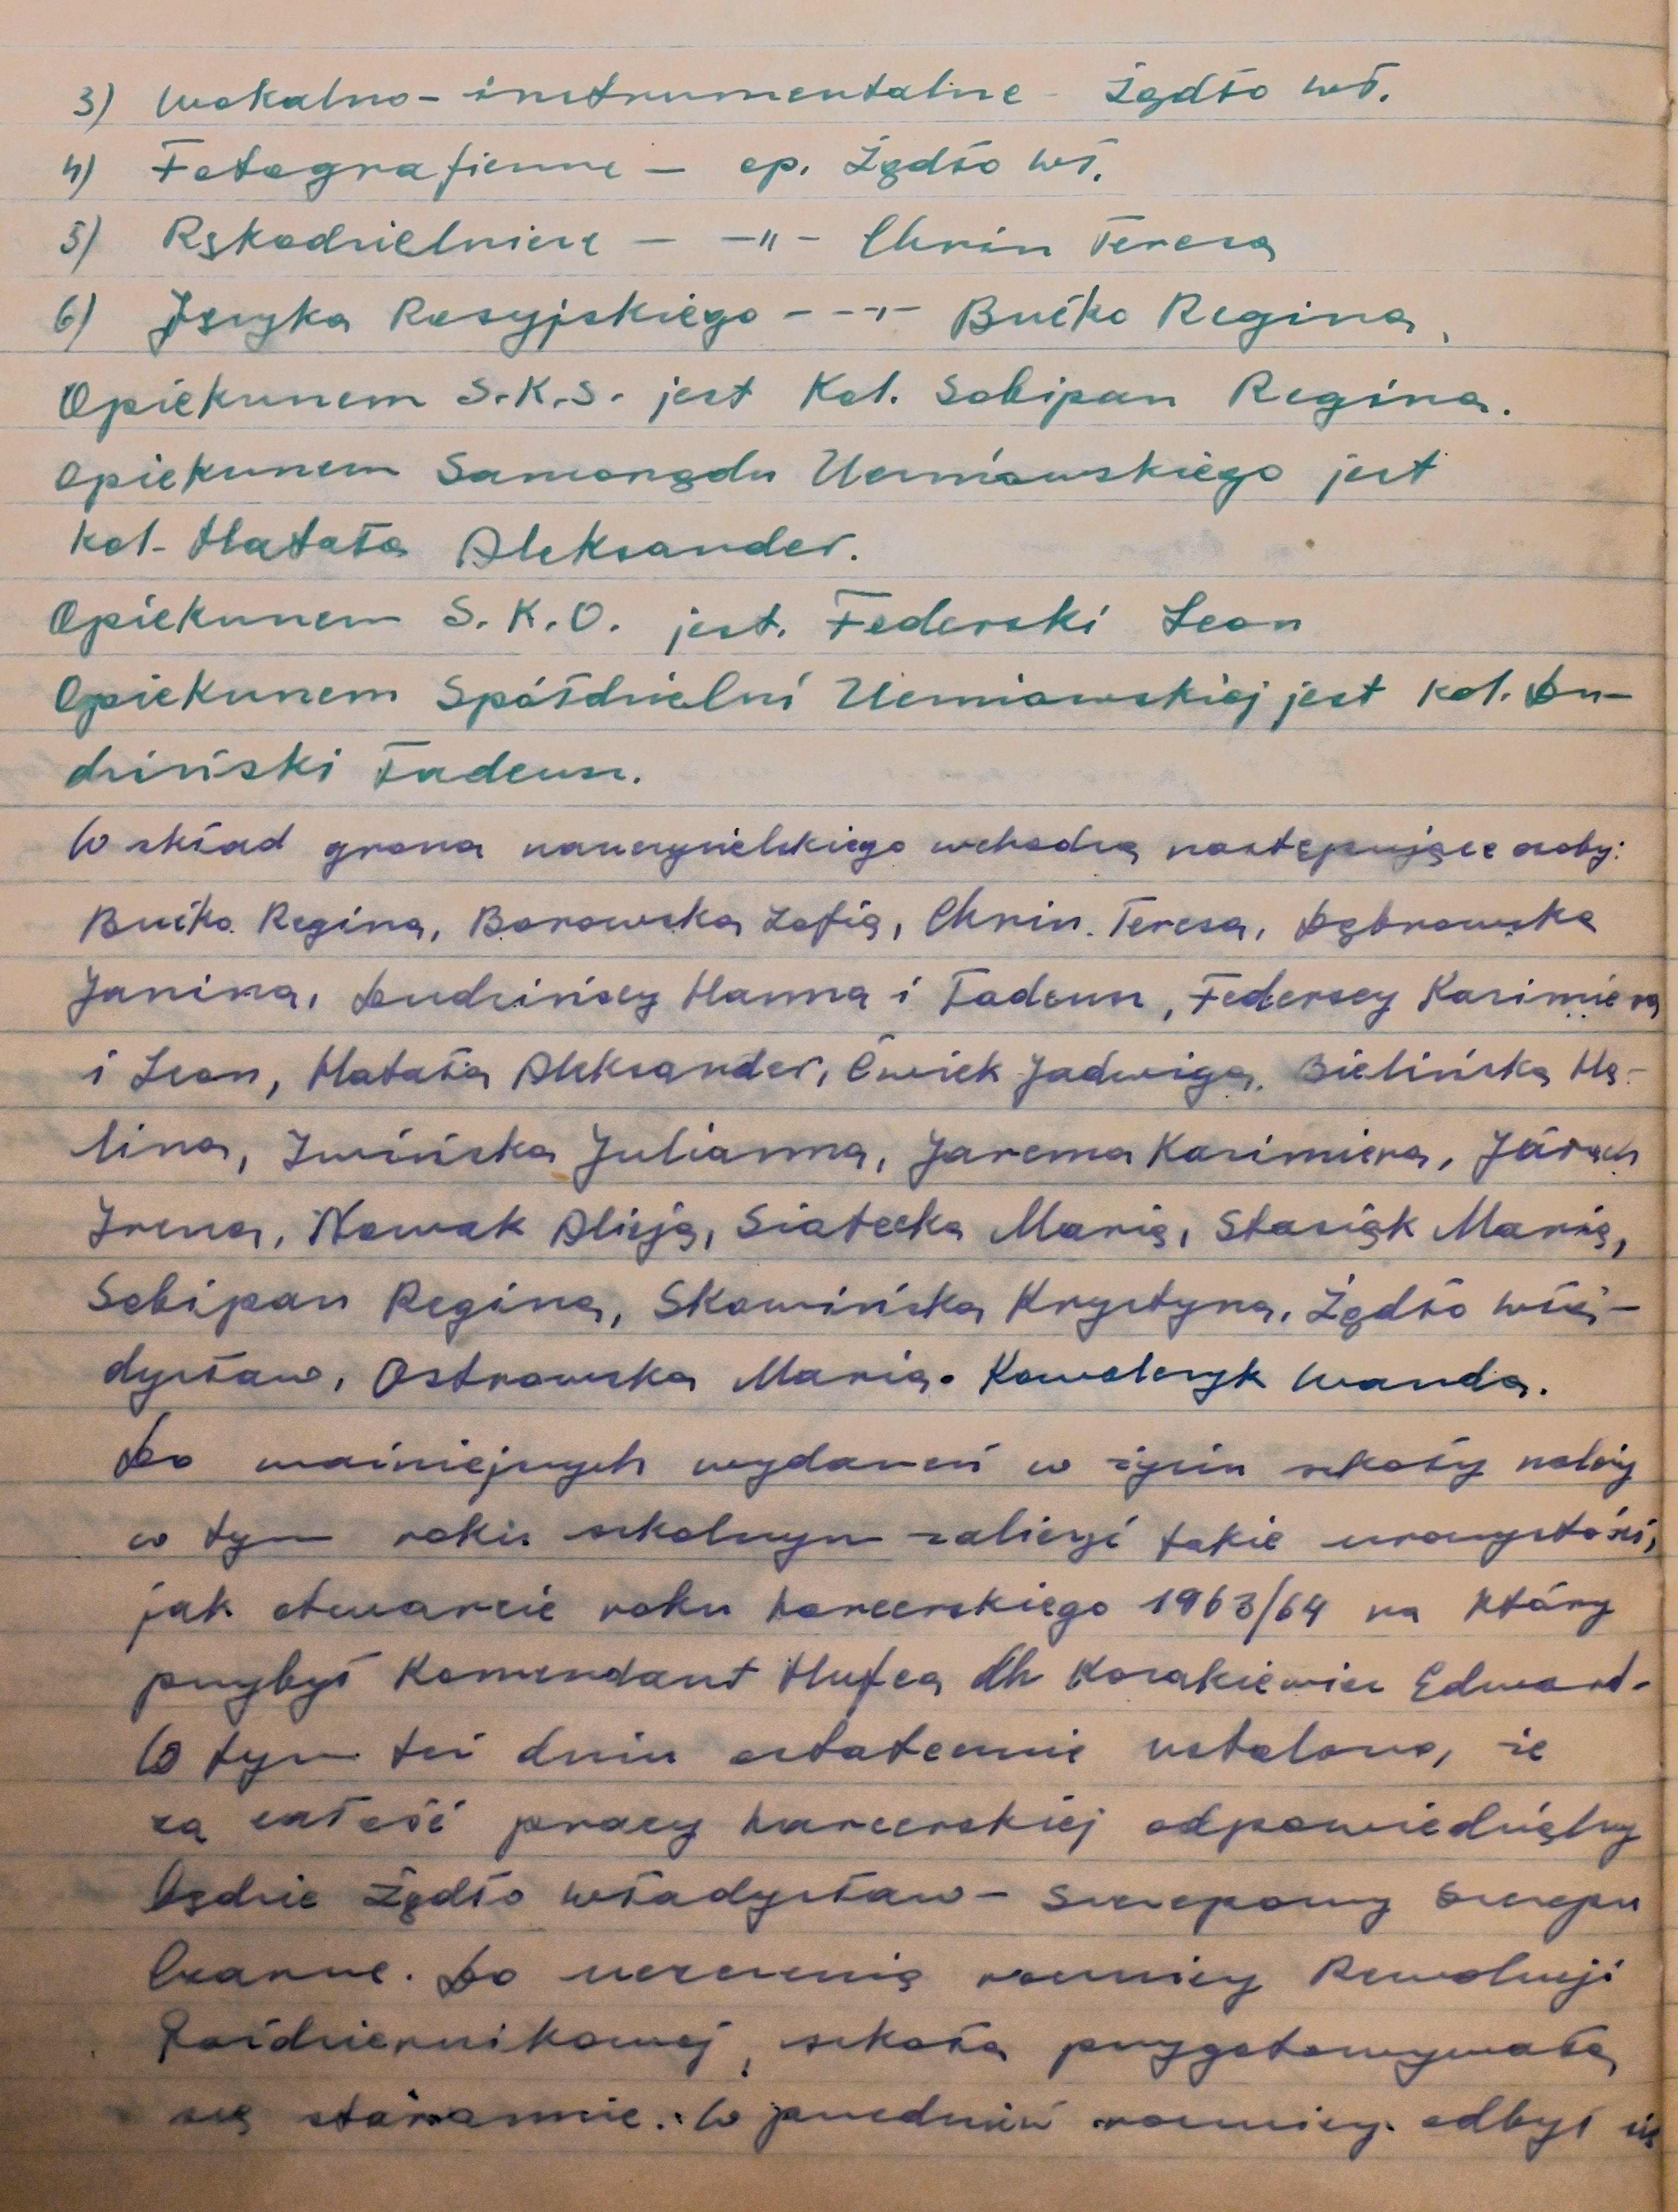 3) Wokalno-instrumentalne - Żądło Wł.
4) Fotograficzne — op. Żądło Wł.
5) Rękodzielnicze — —„— Chrin Teresa
6) Języka Rosyjskiego - -„- Bućko Regina,
Opiekunem S.K.S. jest Kol. Sobipan Regina.
Opiekunem Samorządu Uczniowskiego jest
kol. Hatała Aleksander.
Opiekunem S.K.O. jest. Federski Leon
Opiekunem Spółdzielni Uczniowskiej jest kol. Du-
dziński Tadeusz.
W skład grona nauczycielskiego wchodzą następujące osoby:
Bućko Regina, Borowska Zofia, Chrin Teresa, Dąbrowska
Janina, Dudzińscy Hanna i Tadeusz, Federscy Kazimiera
i Leon, Hatała Aleksander, Ćwiek Jadwiga, Bielińska Ha-
lina, Iwińska Julianna, Jarema Kazimiera, Jarach
Irena, Nowak Alicja, Siatecka Maria, Stasiak Maria,
Sobipan Regina, Skowińska Krystyna, Żądło Wła-
dysław, Ostrowska Maria. Kowalczyk Wanda.
Do ważniejszych wydarzeń w życiu szkoły należy
w tym roku szkolnym zaliczyć takie uroczystości,
jak otwarcie roku harcerskiego 1963/64 na który
przybył Komendant Hufca dh Kozakiewicz Edward.
W tym też dniu ostatecznie ustalono, że
za całość pracy harcerskiej odpowiedzialny
będzie Żądło Władysław - Szczepowy Szczepu
Czarne. Do uczczenia rocznicy Rewolucji
Październikowej, szkoła przygotowywała
się starannie. W przeddzień rocznicy odbył się